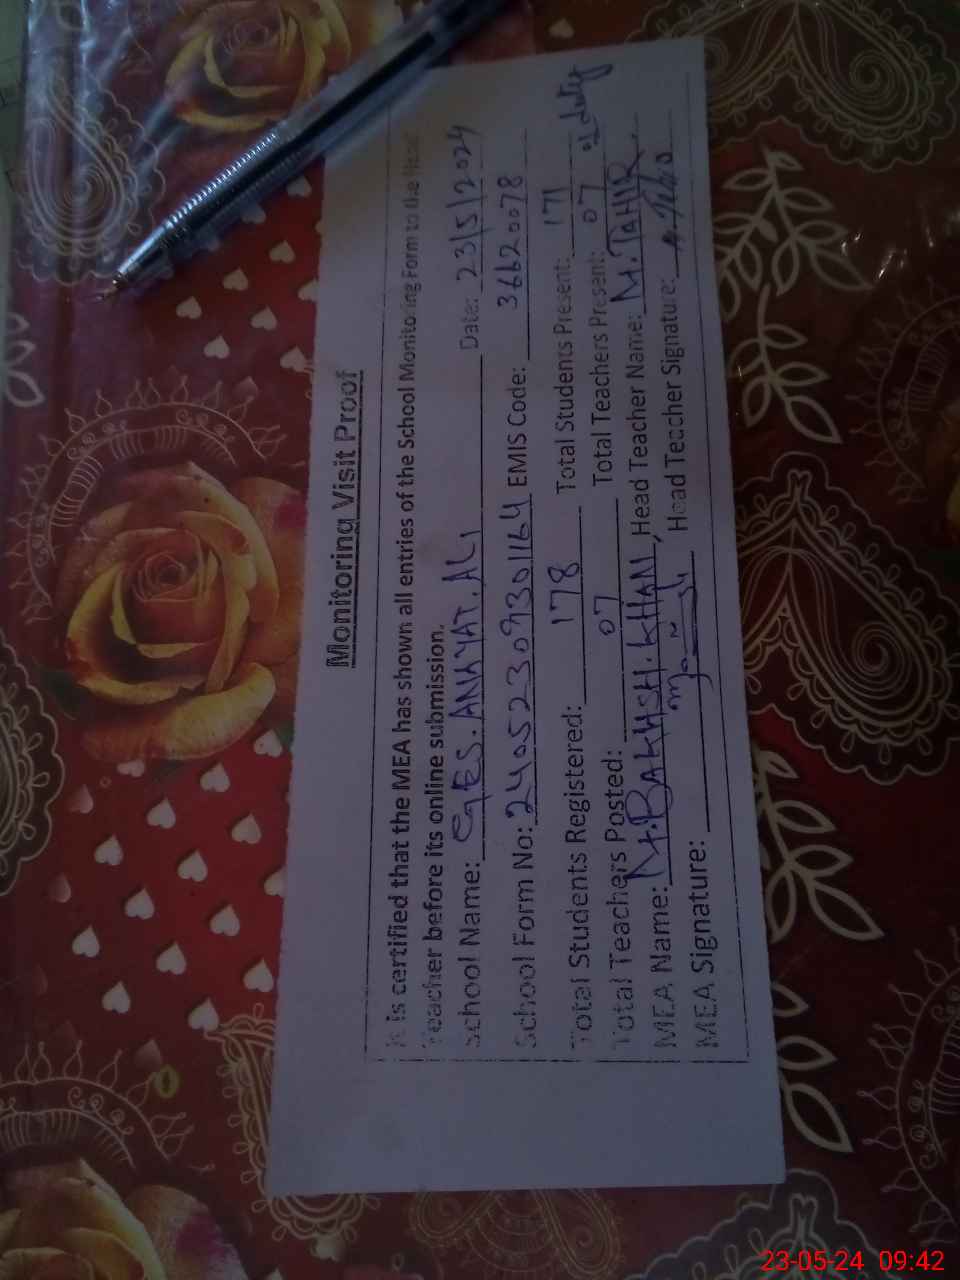 Monitoring Visit Proof
It is certified that the MEA has shown all entries of the School Monitoring Form to the Head
Teacher before its online submission.
School Name: GES. ANAYAT. ALI Date: 23/5/2024
School Form No: 24052309301164 EMIS Code: 36620078
Total Students Registered: 178 Total Students Present: 171
Total Teachers Posted: 07 Total Teachers Present: 07 duty
MEA Name: M. BAKHSH. KHAN, Head Teacher Name: M. TAHIR.
MEA Signature: Head Teacher Signature:
23-05-24 09:42